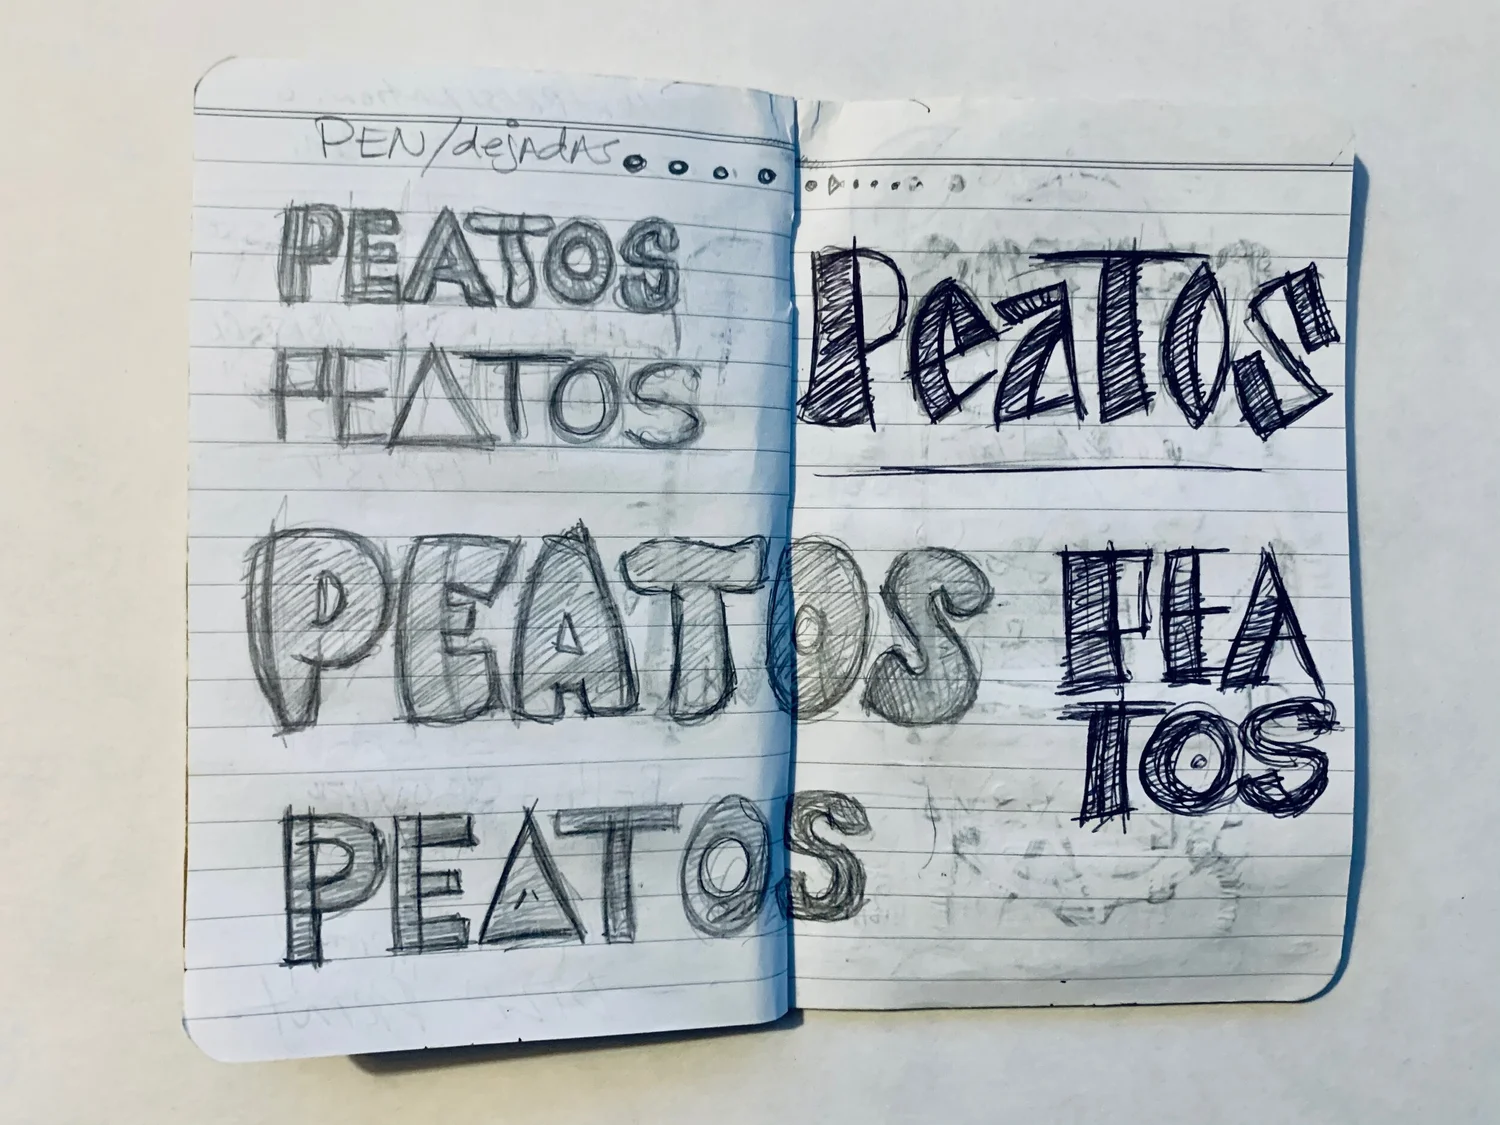 PEN/dejadas
PEATOS
PEATOS
PEATOS
PEATOS
PeaTos
PEA
TOS